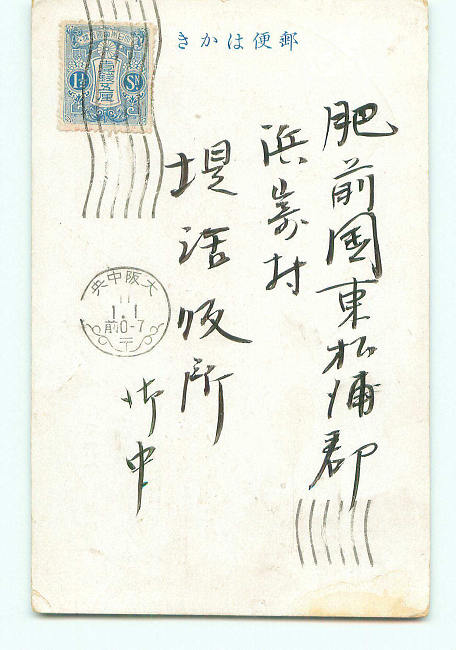 きかは便郵
肥前国東松浦郡
浜崎村
堤活版所
御中
大阪中央
11
1.1
前0-7
〒
1½
Sn
壹銭五厘